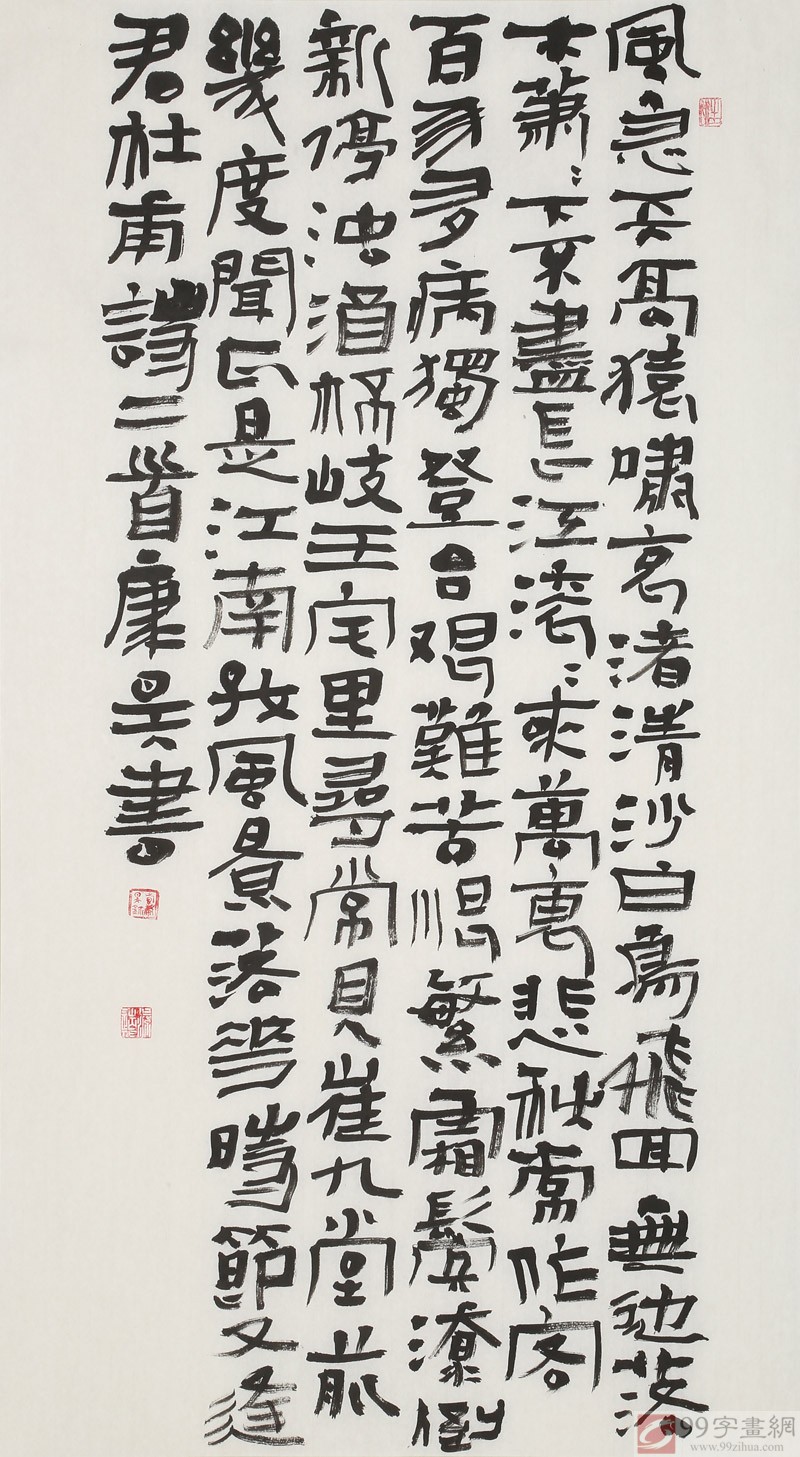 風急天高猿嘯哀渚清沙白鳥飛回無边落
木蕭〻下不盡長江滾〻來萬裏悲秋常作客
百年多病獨登台艱難苦恨繁霜鬢潦倒
新停浊酒杯岐王宅里尋常見崔九堂前
幾度聞正是江南好風景落花時節又逢
君杜甫詩二首康昊書
99字畫網
www.99zihua.com